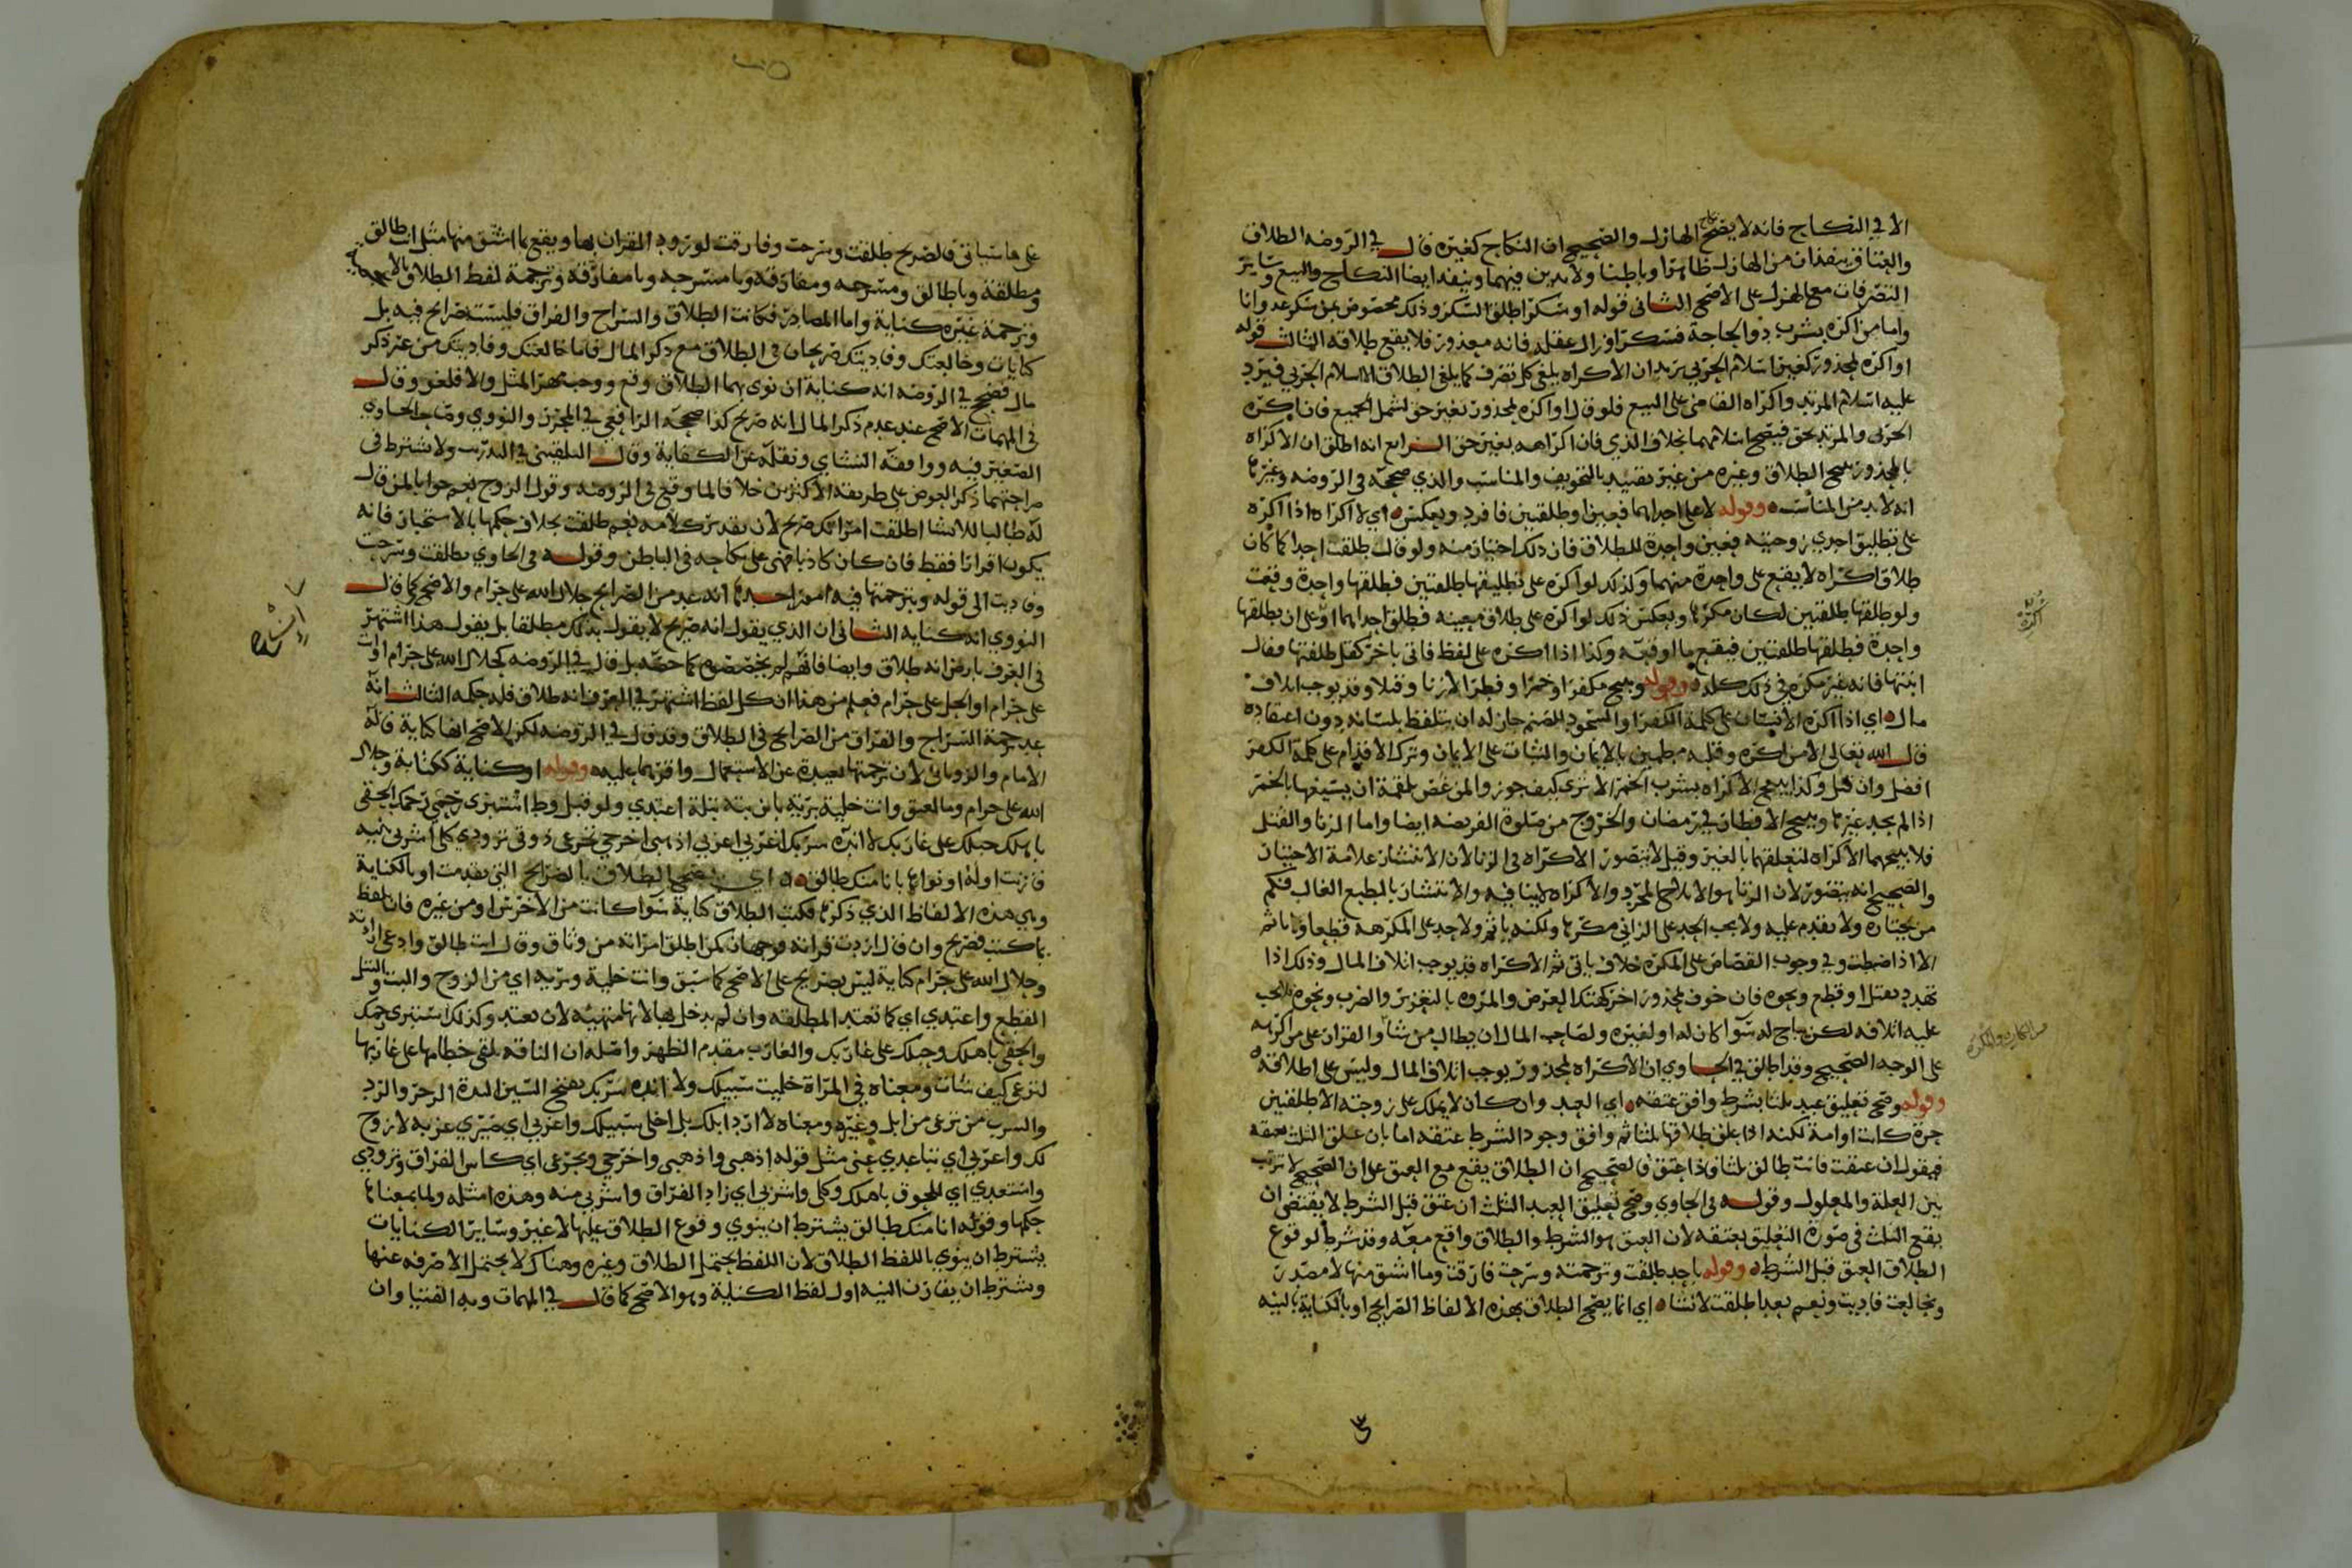 الا في النكاح فانه لا يصح نكاح الهازل والصحيح ان النكاح كغيره قال في الروضه الطلاق
والعتاق ينفذان من الهازل ظاهرا وباطنا ولا يدين فيهما وينفذ ايضا النكاح والبيع وساير
التصرفات مع الهزل على الاصح الثاني قوله او سكر اطلق السكر وذلك مخصوص بمن سكر عدوانا
واما من اكره بشرب دوا لحاجة فسكر او زال عقله فانه معذور فلا يقع طلاقه الثالث قوله
او اكره لمحذور كغير اسلام الحربي يريد ان الاكراه يلغي كل تصرف كما يلغي الطلاق الا اسلام الحربي فيرد
عليه اسلام المرتد واكراه القاضي على البيع فلو قال او اكره لمحذور بغير حق لشمل الجميع فان اكره
الحربي والمرتد بحق فيصح اسلامهما بخلاف الذي فان اكراهه بغير حق الرابع انه اطلق ان الاكراه
بالمحذور يبيح الطلاق وغيره من غير تقييد بالتخويف والمناسب والذي صححه في الروضه وغيرها
انه لا بد من المناسب وقوله لا على احداهما فعين او طلقتين فافرد وبعكس اي لا اكراه اذا اكره
على تطليق احدي زوجتيه فعين واحدة للطلاق فان ذلك اختيار منه ولو قال طلقت احداكما كان
طلاق اكراه لا يقع على واحدة منهما وكذلك لو اكره على تطليقها طلقتين فطلقها واحدة وقعت
ولو طلقها طلقتين لكان مكرها وبعكس ذلك لو اكره على طلاق معينه فطلق احداهما او على ان يطلقها
واحدة فطلقها طلقتين فيقع ما اوقعه وكذا اذا اكره على لفظ فاتى باخر كقل طلقتها فقال
ابنتها فانه غير مكره في ذلك كله وقوله ويبيح مكفرا وخمرا وفطرا لا زنا وقتلا وقد يوجب اتلاف
مال اي اذا اكره الانسان على كلمة الكفر او السجود للصنم جاز له ان يتلفظ بلسانه دون اعتقاده
قال الله تعالى الا من اكره وقلبه مطمين بالايمان والثبات على الايمان وترك الاقدام على كلمة الكفر
افضل وان قتل وكذا يبيح الاكراه بشرب الخمر الا ترى كيف جوز والمن غص بلقمة ان يسيغها بالخمر
اذا لم يجد غيرها ويبيح الافطار في رمضان والخروج من صلوة الفريضه ايضا واما الزنا والقتل
فلا يبيحهما الاكراه لتعلقهما بالغير وقيل لا يتصور الاكراه في الزنا لان الانتشار علامة الاختيار
والصحيح انه يتصور لان الزنا هو الايلاج المجرد والاكراه لا ينافيه والانتشار بالطبع الغالب فكم
من يختاره ولا يقدم عليه ولا يجب الحد على الزاني مكرها ولكنه ياثم ولا حد على المكرهة قطعا ولا ياثم
الا اذا ضبطت وفي وجوب القصاص على المكره خلاف ياتي ثم الاكراه قد يوجب اتلاف المال وذلك اذا
تهدد بقتل او قطع ونحوه فان خوف لمحذور اخر كهتك العرض والمروه بالتعزير والضرب ونحوه لم يجب
عليه اتلافه لكن يباح له سوا كان له او لغيره ولصاحب المال ان يطالب من شا والقرار على من اكرهه
على الوجه الصحيح وقد اطلق في الحاوي ان الاكراه لمحذور يوجب اتلاف المال وليس على اطلاقه
وقوله وصح تعليق عبد ثلثا بشرط وافق عتقه اي العبد وان كان لا يملك على زوجته الا طلقتين
حرة كانت او امة لكنه اذا علق طلاقها ثلثا ثم وافق وجود الشرط عتقه اما بان علق الثلث بعتقه
فيقول ان عتقت فانت طالق ثلثا فاذا عتق فالصحيح ان الطلاق يقع مع العتق على ان الصحيح لا ترتب
بين العلة والمعلول وقوله في الحاوي وصح تعليق العبد الثلث ان عتق قبل الشرط لا يقتضي ان
يقع الثلث في صورة التعليق بعتقه لان العتق هو الشرط والطلاق واقع معه وقد شرط لوقوع
الطلاق العتق قبل الشرط وقوله باحد طلقت وترجمته وسرحت فارقت وما اشتق منها لا مصدر
وبخالعت فاديت ونعم بعد اطلقت لانشا اي انما يصح الطلاق بهذه الالفاظ الصرايح او بالكناية بالنيه
على
اكره
على ما سياتي فالصريح طلقت وسرحت وفارقت لورود القران بها ويقع بما اشتق منها مثل انت طالق
ومطلقة ويا طالق ومسرحه ومفارقه ويا مسرحه ويا مفارقه وترجمة لفظ الطلاق بالاعجمية
وترجمة غيره كناية واما المصادر فكانت الطلاق والسراح والفراق فليست صرايح فيه بل
كنايات وخالعتك وفاديتك صريحان في الطلاق مع ذكر المال فاما خالعتك وفاديتك من غير ذكر
مال فصحح في الروضه انه كناية ان نوى بهما الطلاق وقع ووجب مهر المثل والا فلغو وقال
في المهمات الاصح عند عدم ذكر المال انه صريح كذا صححه الرافعي في المحرر والنووي وصاحب الحاوي
الصغير فيه ووافقه النشاي ونقله عن الكفاية وقال البلقيني في التدريب ولا يشترط في
صراحتهما ذكر العوض على طريقة الاكثرين خلافا لما وقع في الروضه وقول الزوج نعم جوابا لمن قال
له طالبا للانشا اطلقت امراتك صريح لان تقدير كلامه نعم طلقت بخلاف حكمها بالاستخبار فانه
يكون اقرارا فقط فان كان كاذبا فهي على نكاحه في الباطن وقوله في الحاوي بطلقت وسرحت
وفاديت الى قوله وبترجمتها فيه امور احدها انه عد من الصرايح حلال الله على حرام والاصح كما قال
النووي انه كنايه الثاني ان الذي يقول انه صريح لا يقول بذلك مطلقا بل يقول هذا اشتهر
في العرف بارض انه طلاق وايضا فانهم لم يخصصوه كما خصه بل قال في الروضه كحلال الله على حرام او انت
على حرام او الحل على حرام فعلم من هذا ان كل لفظ اشتهر في العرف انه طلاق فله حكمه الثالث انه
عد ترجمة السراح والفراق من الصرايح في الطلاق وقد قال في الروضه لكن الاصح انها كناية قاله
الامام والروياني لان ترجمتها بعيدة عن الاستعمال واقرهما عليه وقوله او كناية ككتابة وحلال
الله على حرام وما لعتق وانت خلية برية باين بتة بتلة اعتدي ولو قبل وطا استبري رحمي رحمك الحقي
باهلك حبلك على غاربك لا انده سربك اغربي اعزبي اذهبي اخرجي تجرعي ذوقي تزودي كلي اشربي بنيه
قارنت اوله او نواع بانا منك طالق اي يصح الطلاق بالصرايح التي تقدمت او بالكناية
وهي هذه الالفاظ الذي ذكرها فكتب الطلاق كناية سوا كانت من الاخرس او من غيره فان تلفظ
بما كتب فصريح وان قال اردت قراته فوجهان كمن اطلق امراته من وثاق وقال انت طالق وادعى ارادته
وحلال الله على حرام كناية ليس بصريح على الاصح كما سبق وانت خلية وبريه اي من الزوج والبت والبتل
القطع واعتدي اي كما تعتد المطلقه وان لم يدخل بها لانها متهيئه لان تعتد وكذلك استبري رحمك
والحقي باهلك وحبلك على غاربك والغارب مقدم الظهر واصله ان الناقه يلقى خطامها على غاربها
لترعى كيف شات ومعناه في المراة خليت سبيلك ولا انده سربك بفتح السين الندة الزجر والرد
والسرب من ترعى من ابل وغيره ومعناه لا ارد ابلك بل اخلى سبيلك واعزبي اي صيري عزبه لا زوج
لك واغربي اي تباعدي عني مثل قوله اذهبي واذهبي واخرجي وتجرعي اي كاس الفراق وتزودي
واستعدي اي للحوق باهلك وكلي واشربي اي زاد الفراق واشربي منه وهذه امثله ولما بمعناها
حكمها وقوله انا منك طالق يشترط ان ينوي وقوع الطلاق عليها لا غير وساير الكنايات
يشترط ان ينوي باللفظ الطلاق لان اللفظ يحتمل الطلاق وغيره وهناك لا يحتمل الا صرفه عنها
ويشترط ان يقارن النيه اول لفظ الكناية وهو الاصح كما قال في المهمات وبه الفتيا وان